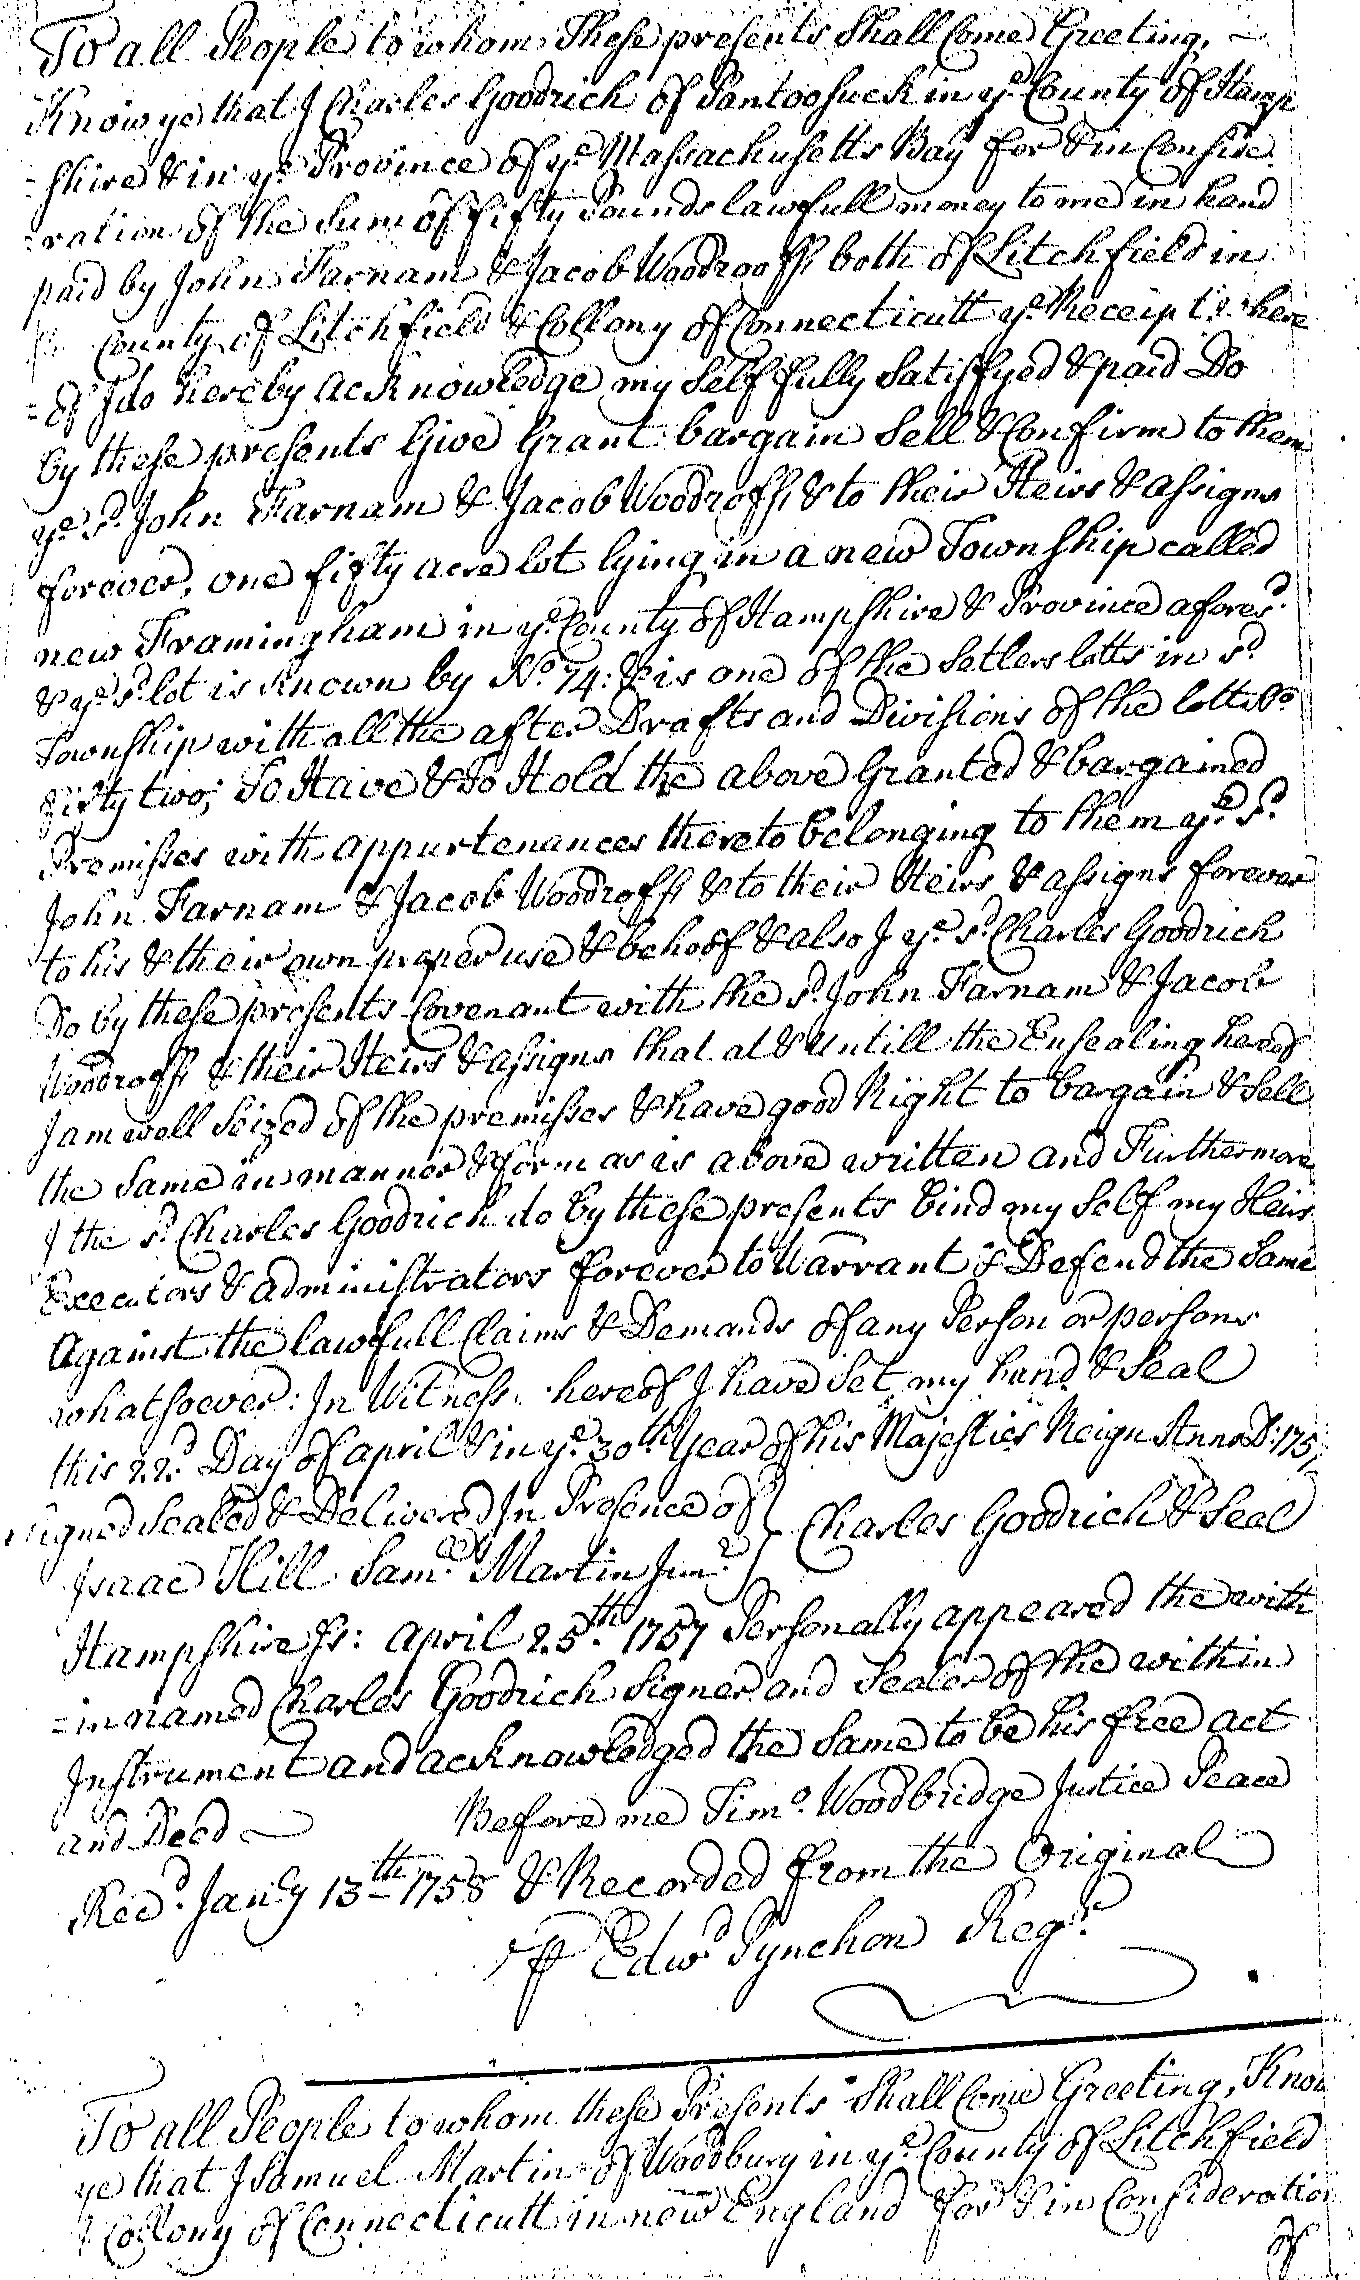 To all People to whom These presents Shall Come Greeting,
Know ye that I Charles Goodrich of Pantoosuck in ye County of Hamp
=shire & in ye Province of ye Massachusetts Bay for & in Conside
=ration of the Sum of fifty Pounds lawfull money to me in hand
paid by John Farnam & Jacob Woodrooff both of Litchfield in
County of Litchfield & Collony of Connecticutt ye Receipt where
=of I do hereby acknowledge my Self fully Satisfyed & paid Do
by these presents Give Grant bargain Sell & Confirm to them
ye sd John Farnam & Jacob Woodroff & to their Heirs & assigns
forever, one fifty acre lot lying in a new Township called
new Framingham in ye County of Hampshire & Province aforesd
& ye sd lot is Known by No 74: & is one of the Setlers lotts in sd
Township with all the after Drafts and Divisions of the lott No
fifty two; To Have & To Hold the above Granted & bargained
Premisses with appurtenances thereto belonging to them ye sd
John Farnam & Jacob Woodroff & to their Heirs & assigns forever
to his & their own proper use & behoof & also I ye sd Charles Goodrich
Do by these presents Covenant with the sd John Farnam & Jacob
Woodroff & their Heirs & assigns that at & untill the Ensealing hereof
I am well Seized of the premisses & have good Right to bargain & Sell
the Same in manner & form as is above written and Furthermore
I the sd Charles Goodrich do by these presents bind my Self my Heirs
Executors & administrators forever to Warrant & Defend the Same
Against the lawfull Claims & Demands of any Person or persons
whatsoever: In Witness hereof I have Set my hand & Seal
this 22d Day of april & in ye 30th Year of his Majesties Reign Anno D: 1757
Signed Sealed & Delivered In Presence of } Charles Goodrich & Seal
Isaac Hill Samel Martin Junr }
Hampshire ss: april 25th 1757 Personally appeared the with
=in named Charles Goodrich Signer and Sealer of the within
Instrument and acknowledged the Same to be his free act
and Deed Before me Timo Woodbridge Justice Peace
Recd Janry 13th 1758 & Recorded from the Original
p Edwd Pynchon Regr
To all People to whom these Presents Shall Come Greeting, Know
ye that I Samuel Martin of Woodbury in ye County of Litchfield
& Collony of Connecticutt in new England for & in Consideration
of